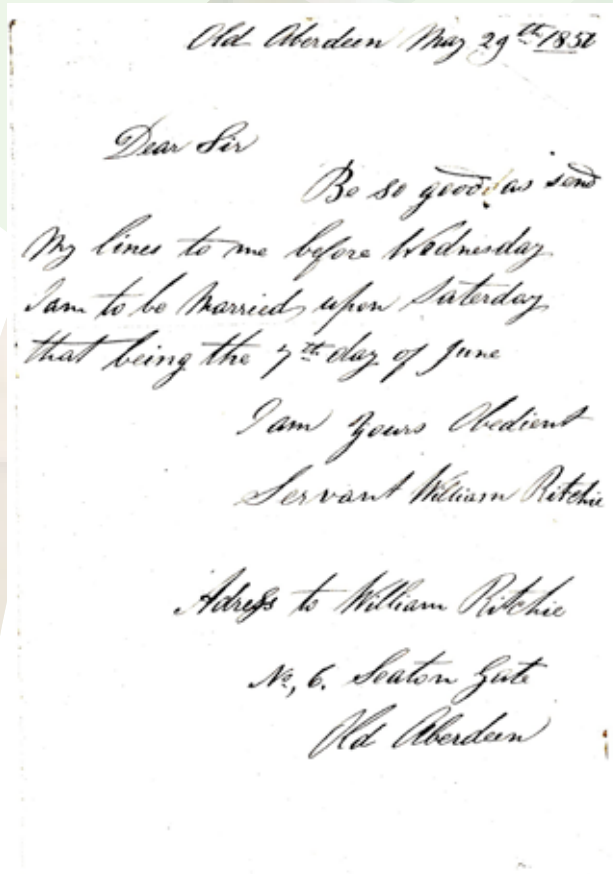 Old Aberdeen May 29th
Dear Sir
Be so good as send
My lines to me before Wednesday
I am to be Married upon Saterday
that being the 7th day of June
I am Yours Obedient
Servant William Ritchie
Adress to William Ritchie
No, 6. Seaton Gate
Old Aberdeen